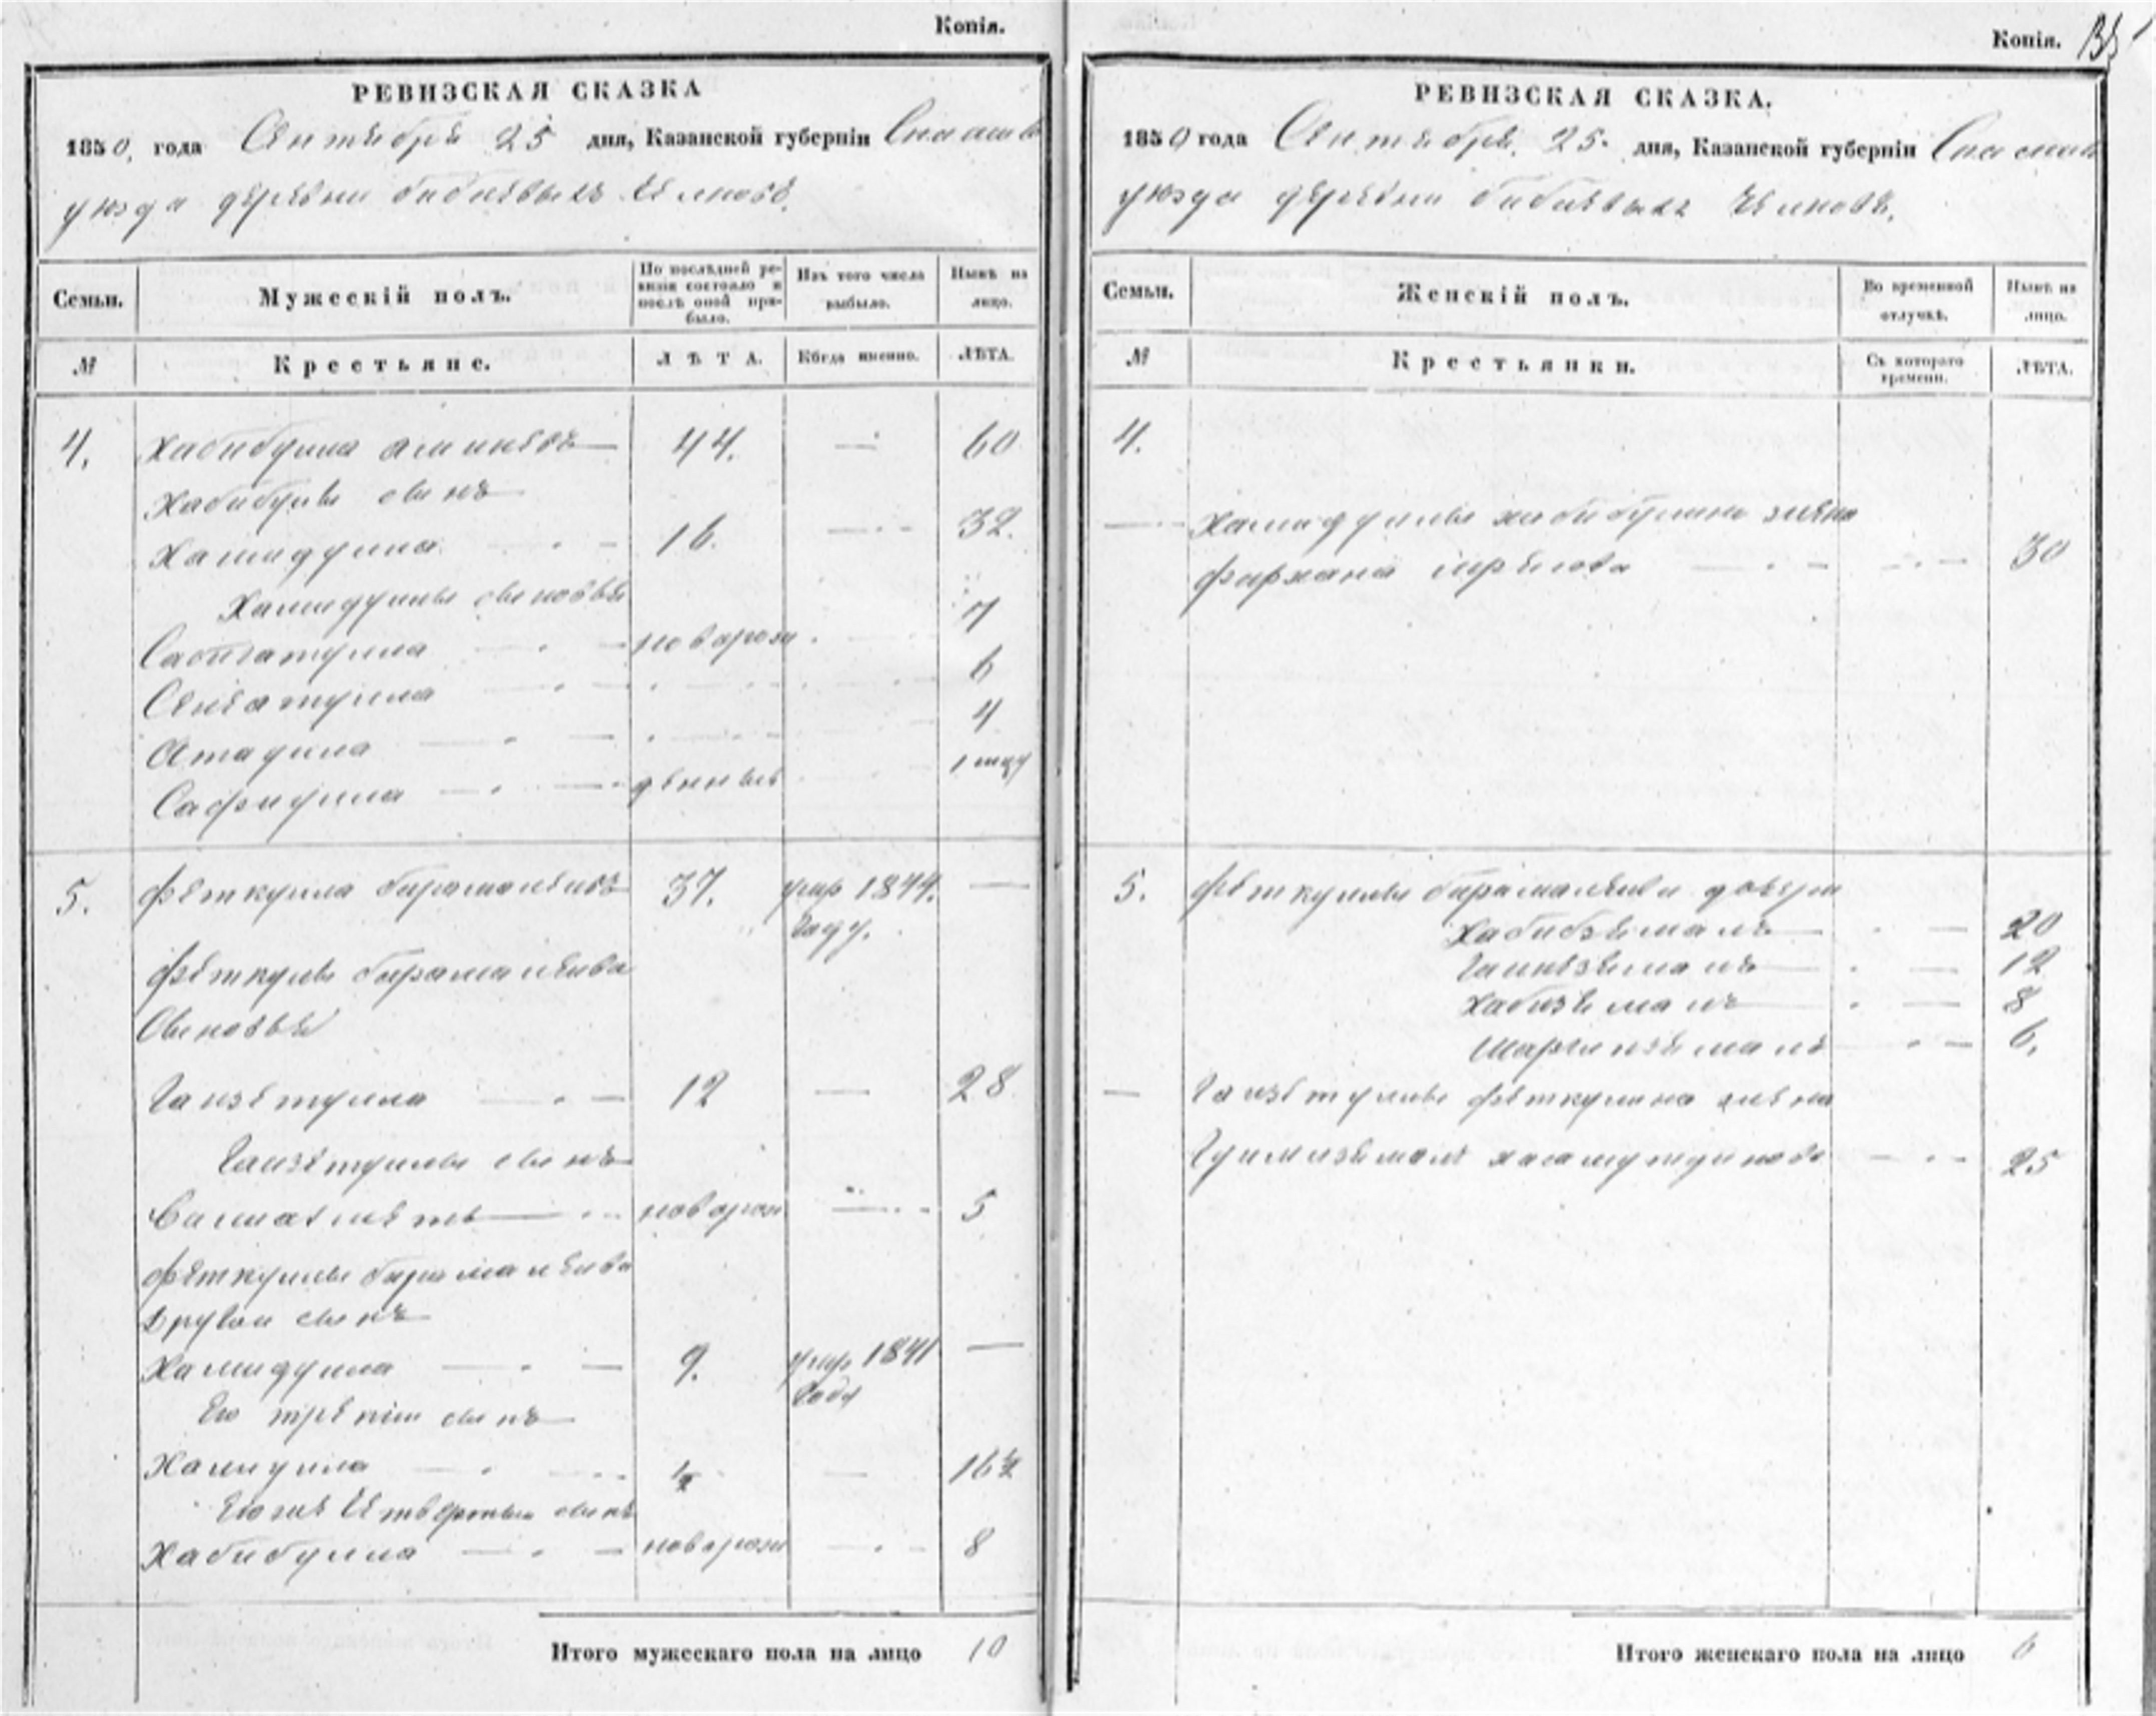 Копія.
РЕВИЗСКАЯ СКАЗКА
1850, года Сентебре 25 дня, Казанской губерніи Спаскаго
уезда деревни бибиевыхъ Челновъ.
Семьи.
Мужескій полъ.
По послѣдней ревизіи состояло и послѣ оной прибыло.
Изъ того числа выбыло.
Нынѣ на лицо.
№
Крестьяне.
ЛѢТА.
Когда именно.
ЛѢТА.
4. Хабибулла аминевъ 44. — 60
Хабибулы сынъ
Хамидулла 16. — 32.
Хамидуллы сыновьѣ
Сабгатулла новорож 7
6
4
Сафиулла денные 1 мцу
5. Феткулла бирамалеевъ 37. умр 1844. —
году.
Феткулы бирамалеева
Сыновьѣ
Гаизетулла 12 — 28
Гаизетуллы сынъ
новорож — 5
Феткуллы бирамалеева
другои сынъ
Хамидулла 9. умр 1841 —
года
Его третіи сынъ
Хамиулла — 16½
Егоже Четвертыи сынъ
Хабибулла новорож — 8
Итого мужескаго пола на лицо 10
Копія.
РЕВИЗСКАЯ СКАЗКА.
1850 года Сентебре 25. дня, Казанской губерніи Спаскаго
уезда деревни бибиевыхъ Челновъ.
Семьи.
Женскій полъ.
Во временной отлучкѣ.
Нынѣ на лицо.
№
Крестьянки.
Съ котораго времени.
ЛѢТА.
4.
— Хамидуллы хабибулина жена
30
5. Феткуллы бирамалеева дочери
Хабибземалъ 20
12
8
6.
— Гаизетуллы феткулина жена
25
Итого женскаго пола на лицо 6